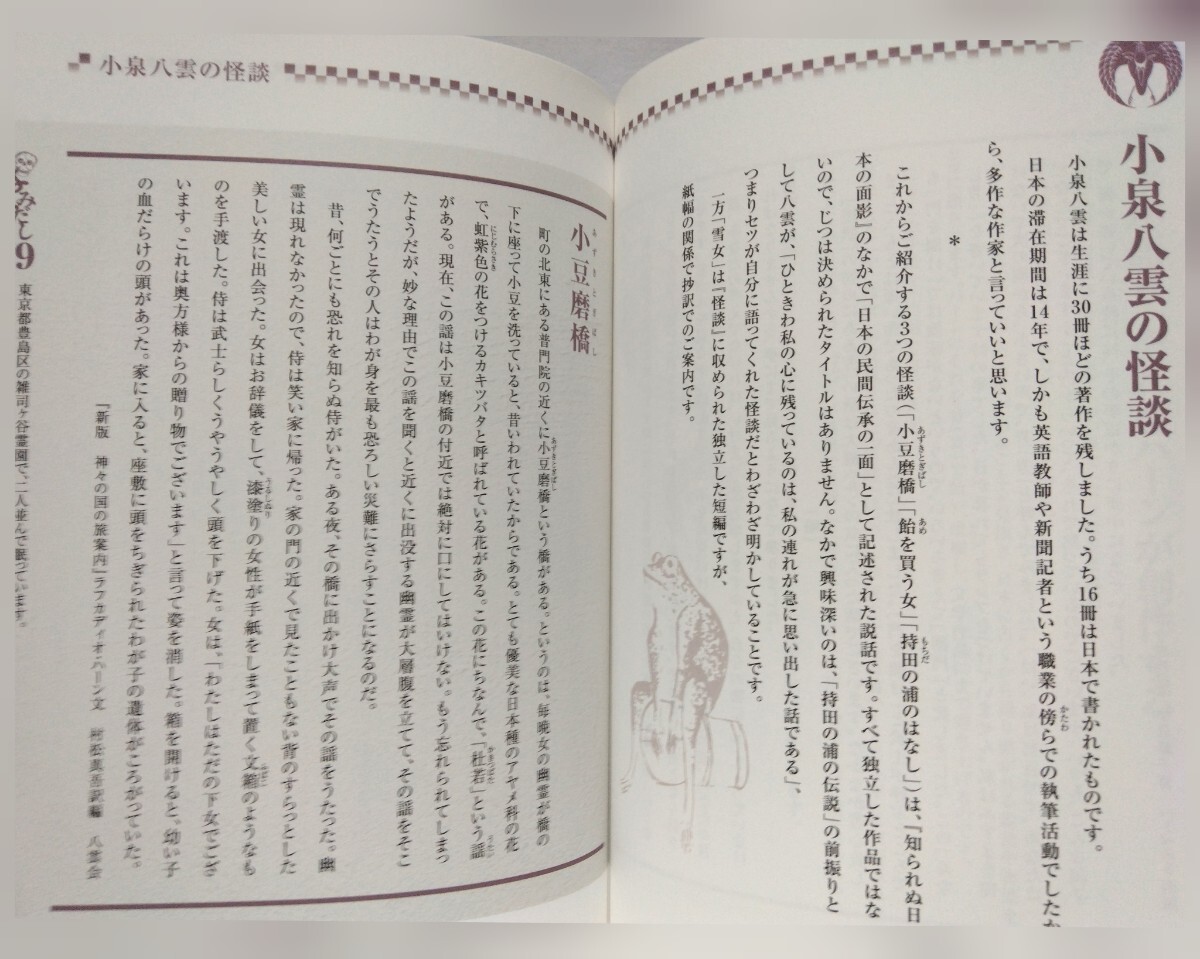 小泉八雲の怪談
小泉八雲は生涯に30冊ほどの著作を残しました。うち16冊は日本で書かれたものです。
日本の滞在期間は14年で、しかも英語教師や新聞記者という職業の傍らでの執筆活動でしたか
ら、多作な作家と言っていいと思います。
*
これからご紹介する3つの怪談(「小豆磨橋」「飴を買う女」「持田の浦のはなし」)は、『知られぬ日
本の面影』のなかで「日本の民間伝承の一面」として記述された説話です。すべて独立した作品ではな
いので、じつは決められたタイトルはありません。なかで興味深いのは、「持田の浦の伝説」の前振りと
して八雲が、「ひときわ私の心に残っているのは、私の連れが急に思い出した話である」、
つまりセツが自分に語ってくれた怪談だとわざわざ明かしていることです。
一方「雪女」は『怪談』に収められた独立した短編ですが、
紙幅の関係で抄訳でのご案内です。
小泉八雲の怪談
小豆磨橋
町の北東にある普門院の近くに小豆磨橋という橋がある。というのは、毎晩女の幽霊が橋の
下に座って小豆を洗っていると、昔いわれていたからである。とても優美な日本種のアヤメ科の花
で、虹紫色の花をつけるカキツバタと呼ばれている花がある。この花にちなんで、「杜若」という謡
がある。現在、この謡は小豆磨橋の付近では絶対に口にしてはいけない。もう忘れられてしまっ
たようだが、妙な理由でこの謡を聞くと近くに出没する幽霊が大層腹を立てて、その謡をそこ
でうたうとその人はわが身を最も恐ろしい災難にさらすことになるのだ。
昔、何ごとにも恐れを知らぬ侍がいた。ある夜、その橋に出かけ大声でその謡をうたった。幽
霊は現れなかったので、侍は笑い家に帰った。家の門の近くで見たこともない背のすらっとした
美しい女に出会った。女はお辞儀をして、漆塗りの女性が手紙をしまって置く文箱のようなも
のを手渡した。侍は武士らしくうやうやしく頭を下げた。女は、「わたしはただの下女でござ
います。これは奥方様からの贈り物でございます」と言って姿を消した。箱を開けると。幼い子
の血だらけの頭があった。家に入ると、座敷に頭をちぎられたわが子の遺体がころがっていた。
『新版 神々の国の旅案内』ラフカディオ・ハーン文 村松真吾訳編 八雲会
みだし9 東京都豊島区の雑司ヶ谷霊園で、二人並んで眠っています。